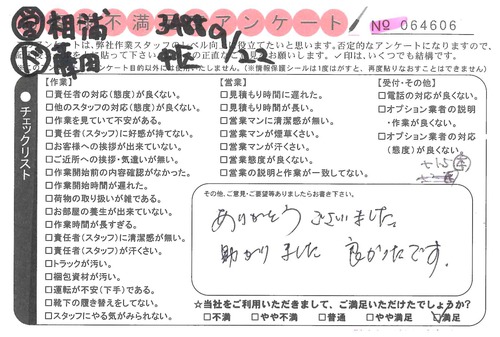 営 相浦 34889/22
ド 藤田
不満 アンケート No 064606
ートは、弊社作業スタッフのレベル向上に役立てたいと思います。否定的なアンケートになりますので、
アンケート目的以外には使用いたしません。(※情報保護シールは1度はがすと、再度貼りなおすことはできません)
チェックリスト
【作業】
□責任者の対応(態度)が良くない。
□他のスタッフの対応(態度)が良くない。
□作業を見ていて不安がある。
□責任者(スタッフ)に好感が持てない。
□お客様への挨拶が出来ていない。
□ご近所への挨拶・気遣いが無い。
□作業開始前の内容確認がなかった。
□作業開始時間が遅れた。
□荷物の取り扱いが雑である。
□お部屋の養生が出来ていない。
□作業時間が長すぎる。
□責任者(スタッフ)に清潔感が無い。
□責任者(スタッフ)が汗くさい。
□トラックが汚い。
□梱包資材が汚い。
□運転が不安(下手)である。
□靴下の履き替えをしてない。
□スタッフにやる気がみられない。
【営業】
□見積もり時間に遅れた。
□見積もり時間が長い。
□営業マンに清潔感が無い。
□営業マンが煙草くさい。
□営業マンが汗くさい。
□営業態度が良くない。
□営業の説明と作業が一致してない。
【受付・その他】
□電話の対応が良くない。
□オプション業者の説明
・作業が良くない。
□オプション業者の対応
(態度)が良くない。
その他、ご意見・ご要望等ありましたらお書き下さい。
ありがとうございました。
助かりました 良かったです。
☆当社をご利用いただきまして、ご満足いただけたでしょうか?
□不満 □やや不満 □普通 □やや満足 □満足